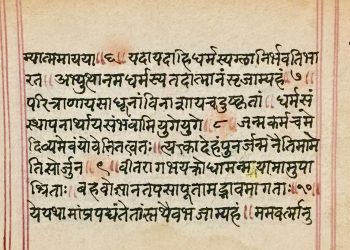 म्यात्ममायया ॥६॥ यदायदाहिधर्मस्यग्लानिर्भवतिभा
रत अभ्युत्थानमधर्मस्यतदात्मानंसृजाम्यहं ॥७॥
परित्राणायसाधूनांविनाशायचदुष्कृतां धर्मसं
स्थापनार्थायसंभवामियुगेयुगे ८ जन्मकर्मचमे
दिव्यमेवंयोवेत्तितत्त्वतः त्यक्त्वादेहंपुनर्जन्मनैतिमामे
तिसोर्जुन ९ वीतरागभयक्रोधामन्मयामामुपा
श्रिताः बहवोज्ञानतपसापूतामद्भावमागताः ॥१०॥
येयथामांप्रपद्यंतेतांस्तथैवभजाम्यहं ममवर्त्मानु